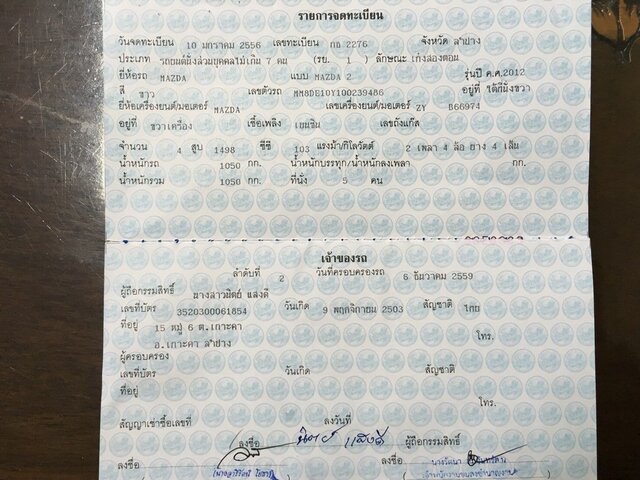 รายการจดทะเบียน
วันจดทะเบียน 10 มกราคม 2556 เลขทะเบียน กถ 2276 จังหวัด ลำปาง
ประเภท รถยนต์นั่งส่วนบุคคลไม่เกิน 7 คน (รย. 1 ) ลักษณะ เก๋งสองตอน
ยี่ห้อรถ MAZDA แบบ MAZDA 2 รุ่นปี ค.ศ.2012
สี ขาว เลขตัวรถ MM8DE10Y100239486 อยู่ที่ ใต้ที่นั่งขวา
ยี่ห้อเครื่องยนต์/มอเตอร์ MAZDA เลขเครื่องยนต์/มอเตอร์ ZY B66974
อยู่ที่ ขวาเครื่อง เชื้อเพลิง เบนซิน เลขถังแก๊ส
จำนวน 4 สูบ 1498 ซีซี 103 แรงม้า/กิโลวัตต์ 2 เพลา 4 ล้อ ยาง 4 เส้น
น้ำหนักรถ 1050 กก. น้ำหนักบรรทุก/น้ำหนักลงเพลา กก.
น้ำหนักรวม 1050 กก. ที่นั่ง 5 คน
เจ้าของรถ
ลำดับที่ 2 วันที่ครอบครองรถ 6 ธันวาคม 2559
ผู้ถือกรรมสิทธิ์ นางสาวนิตย์ แสงดี
เลขที่บัตร 3520300061854 วันเกิด 9 พฤศจิกายน 2503 สัญชาติ ไทย
ที่อยู่ 15 หมู่ 6 ต.เกาะคา โทร.
อ.เกาะคา ลำปาง
ผู้ครอบครอง
เลขที่บัตร วันเกิด สัญชาติ
ที่อยู่
โทร.
สัญญาเช่าซื้อเลขที่ ลงวันที่
ลงชื่อ นิตย์ แสงดี ผู้ถือกรรมสิทธิ์
ลงชื่อ ลงชื่อ นางรัตนา